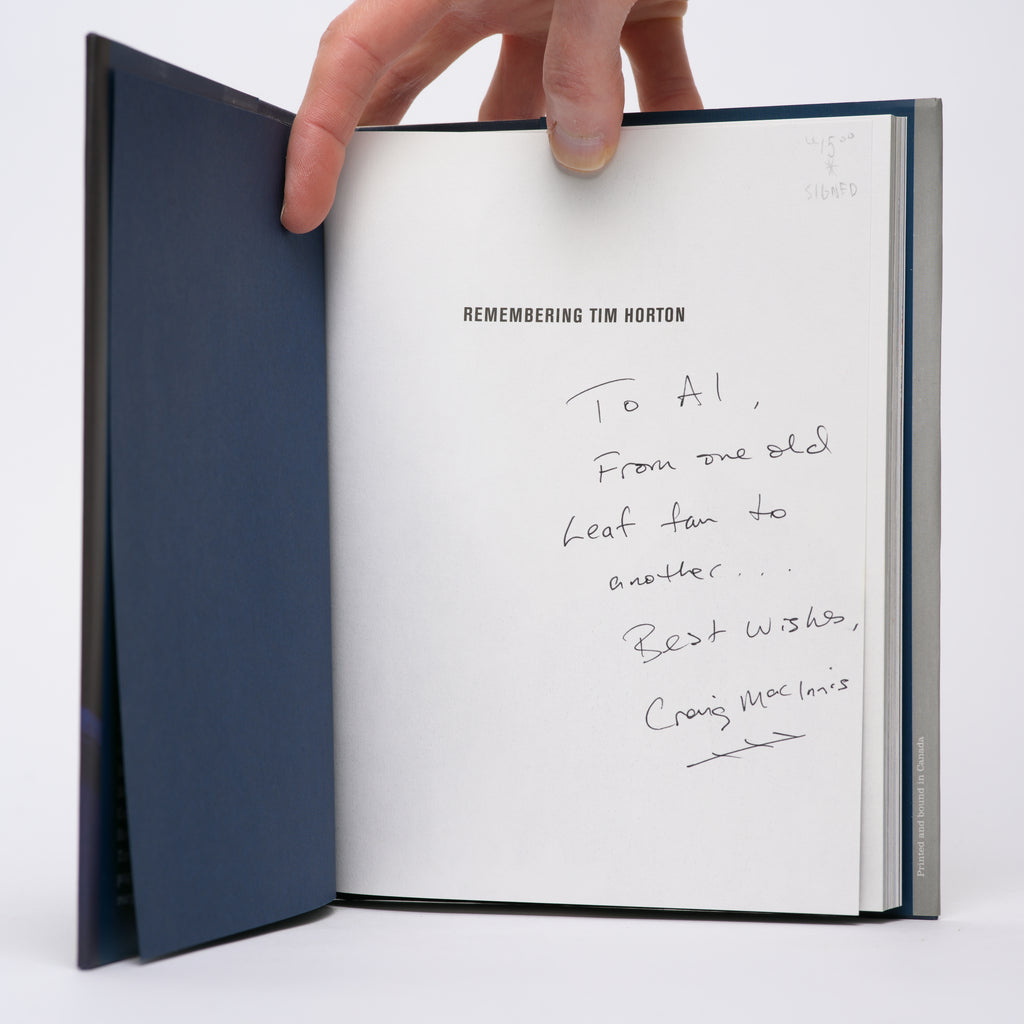 15.00
*
SIGNED
REMEMBERING TIM HORTON
To Al,
From one old
Leaf fan to
another...
Best Wishes,
Craig MacInnis
Printed and bound in Canada